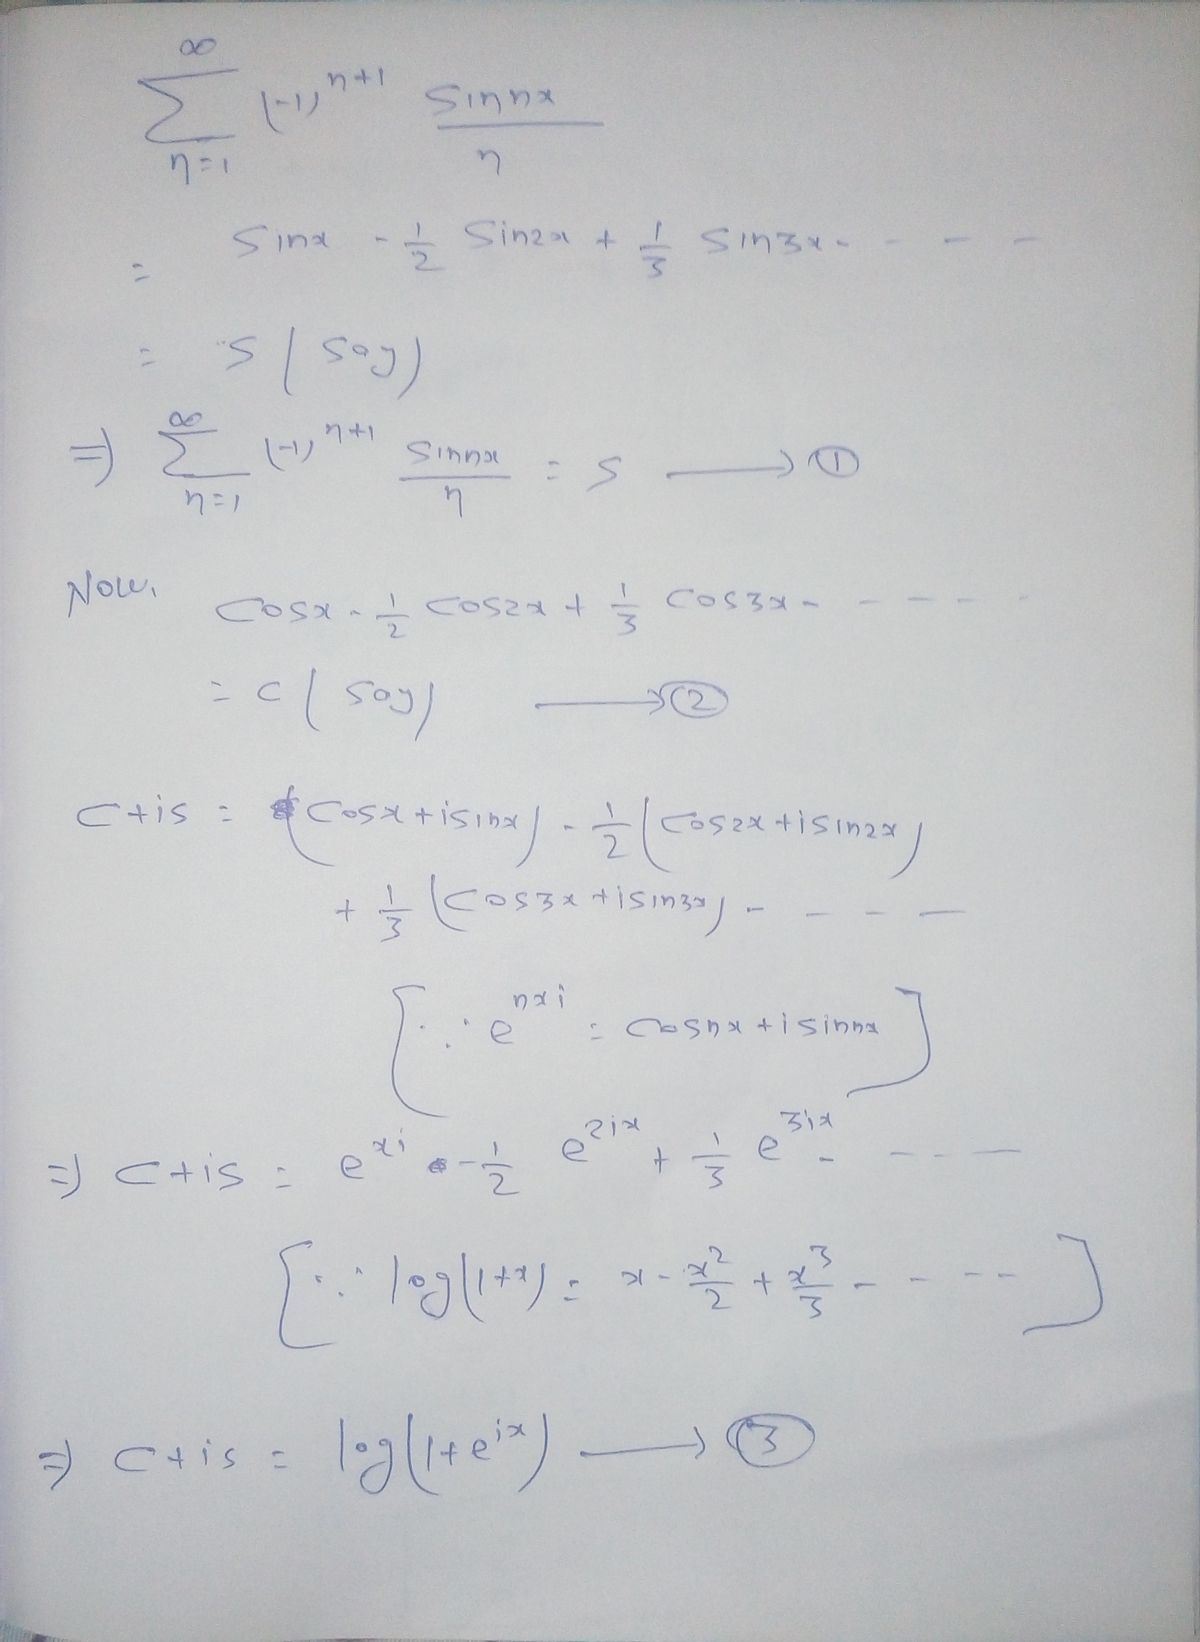 ∞
∑ (-1)^{n+1} sinnx / n
n=1
= sinx - 1/2 sin2x + 1/3 sin3x - - - -
= S (say)
⇒ ∑_{n=1}^{∞} (-1)^{n+1} sinnx / n = S ⟶ ①
Now,
cosx - 1/2 cos2x + 1/3 cos3x - - - - - -
= C (say) ⟶ ②
C+is = (cosx + isinx) - 1/2 (cos2x + isin2x)
+ 1/3 (cos3x + isin3x) - - - -
[∵ e^{nxi} = cosnx + isinnx]
⇒ C+is = e^{xi} - 1/2 e^{2ix} + 1/3 e^{3ix} - - - -
[∵ log(1+x) = x - x²/2 + x³/3 - - - - -]
⇒ C+is = log(1+e^{ix}) ⟶ ③